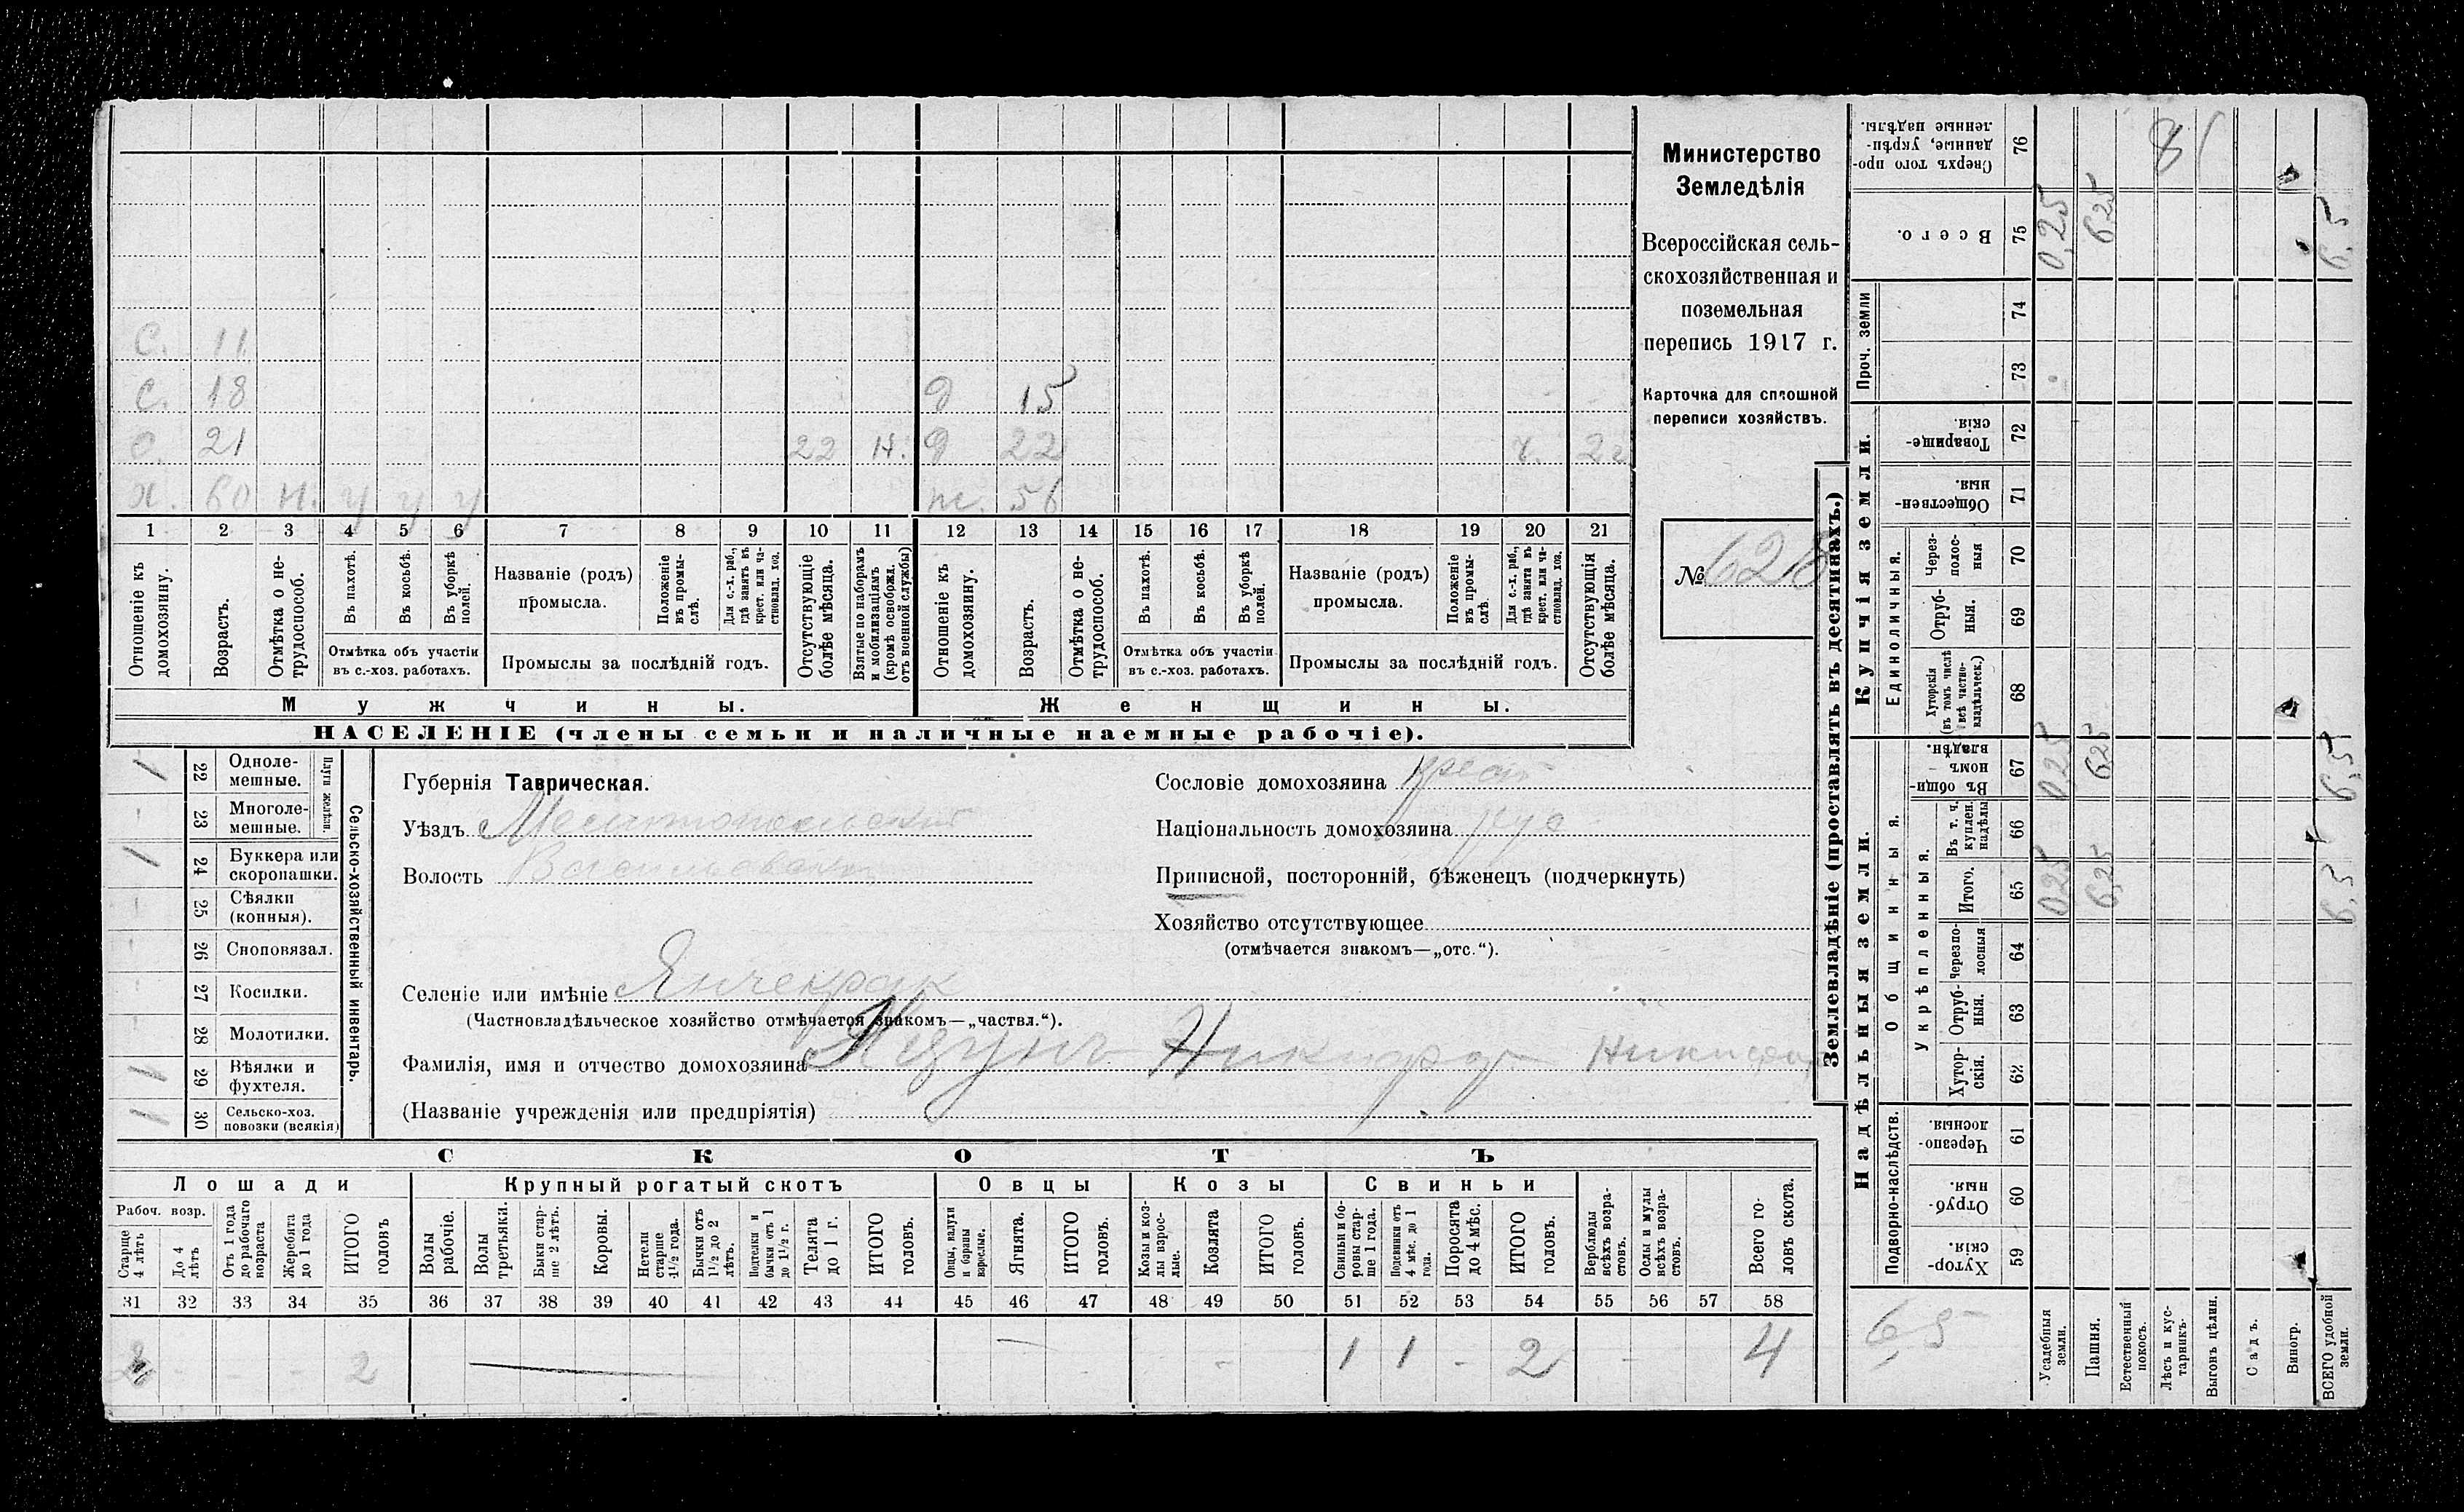 С. 11
С. 18 д 15
С. 21 22 н. д 22 г. 22
х. 60 н. у у у ж. 56
1 2 3 4 5 6 7 8 9 10 11 12 13 14 15 16 17 18 19 20 21
Отношеніе къ домохозяину.
Возрастъ.
Отмѣтка о не-трудоспособ.
Въ пахотѣ.
Въ косьбѣ.
Въ уборкѣ полей.
Отмѣтка объ участіи въ с.-хоз. работахъ.
Названіе (родъ) промысла.
Положеніе въ промы-слѣ.
Для с.-х. раб., гдѣ занятъ въ крест. или ча-стновлад. хоз.
Промыслы за послѣдній годъ.
Отсутствующіе болѣе мѣсяца.
Взятые по наборамъ и мобилизаціямъ (кромѣ освобожд. отъ военной службы)
Отношеніе къ домохозяину.
Возрастъ.
Отмѣтка о не-трудоспособ.
Въ пахотѣ.
Въ косьбѣ.
Въ уборкѣ полей.
Отмѣтка объ участіи въ с.-хоз. работахъ.
Названіе (родъ) промысла.
Положеніе въ промы-слѣ.
Для с.-х. раб., гдѣ занята въ крест. или ча-стновлад. хоз.
Промыслы за послѣдній годъ.
Отсутствующія болѣе мѣсяца.
Мужчины. Женщины.
НАСЕЛЕНІЕ (члены семьи и наличные наемные рабочіе).
Министерство
Земледѣлія
Всероссійская сель-
скохозяйственная и
поземельная
перепись 1917 г.
Карточка для сплошной
переписи хозяйствъ.
№ 628
Сельско-хозяйственный инвентарь.
Плуги желѣзн.
1 22 Одноле-мешные.
- 23 Многоле-мешные.
1 24 Буккера или скоропашки.
25 Сѣялки (конныя).
26 Сноповязал.
27 Косилки.
28 Молотилки.
1 29 Вѣялки и фухтеля.
1 30 Сельско-хоз. повозки (всякія)
Губернія Таврическая.
Уѣздъ Мелитопольский
Волость Васильевская
Селеніе или имѣніе Янчекрак
(Частновладѣльческое хозяйство отмѣчается знакомъ—„частвл.“).
Фамилія, имя и отчество домохозяина
(Названіе учрежденія или предпріятія)
Сословіе домохозяина крест
Національность домохозяина рус
Приписной, посторонній, бѣженецъ (подчеркнуть)
Хозяйство отсутствующее
(отмѣчается знакомъ—„отс.“).
СКОТЪ
Лошади Крупный рогатый скотъ Овцы Козы Свиньи
Рабоч. возр.
Старше 4 лѣтъ
До 4 лѣтъ
Отъ 1 года до рабочаго возраста
Жеребята до 1 года
ИТОГО головъ
Волы рабочіе.
Волы третьяки.
Быки стар-ше 2 лѣтъ.
Коровы.
Нетели старше 1½ года.
Бычки отъ 1½ до 2 лѣтъ.
Подтелки и бычки отъ 1 до 1½ г.
Телята до 1 г.
ИТОГО головъ.
Овцы, валухи и бараны взрослые.
Ягнята.
ИТОГО головъ.
Козы и коз-лы взрос-лые.
Козлята
ИТОГО головъ.
Свиньи и бо-ровы стар-ше 1 года.
Подсвинки отъ 4 мѣс. до 1 года.
Поросята до 4 мѣс.
ИТОГО головъ.
Верблюды всѣхъ возра-стовъ.
Ослы и мулы всѣхъ возра-стовъ.
Всего го-ловъ скота.
31 32 33 34 35 36 37 38 39 40 41 42 43 44 45 46 47 48 49 50 51 52 53 54 55 56 57 58
2 - - - 2 — - 1 1 - 2 - 4
Землевладѣніе (проставлять въ десятинахъ.)
Купчія земли.
Надѣльныя земли.
Сверхъ того про-данные, укрѣп-ленные надѣлы. 76
Всего. 75 0,25 6,25 6,5
Проч. земли 74 73
Товарище-скія. 72
Обществен-ныя. 71
Единоличныя.
Через-полос-ныя 70
Отруб-ныя. 69
Хуторскія (въ томъ числѣ всѣ частно-владѣльческ.) 68
Общинныя.
Въ общин-номъ владѣн. 67 0,25 6,25 6,5
Укрѣпленныя.
Въ т. ч. куплен. надѣлы 66
Итого. 65 0,25 6,25 6,5
Черезпо-лосныя 64
Отруб-ныя. 63
Хутор-скія. 62
Подворно-наслѣдств.
Черезпо-лосныя. 61
Отруб-ныя. 60
Хутор-скія. 59
6,5
Усадебныя земли.
Пашня.
Естественный покосъ.
Лѣсъ и кус-тарникъ.
Выгонъ цѣлин.
Садъ.
Виногр.
ВСЕГО удобной земли.